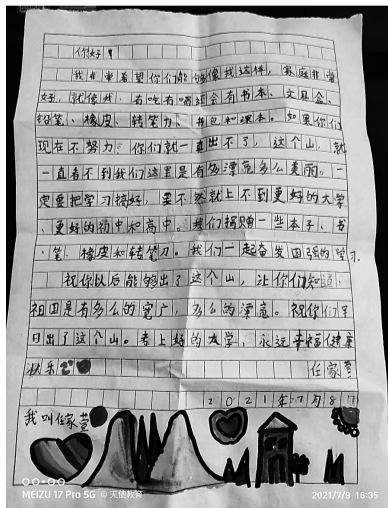 你好！
我非常希望你们能够像我这样，家庭非常
好，就像我，有吃有喝还会有书本、文具盒、
铅笔、橡皮、转笔刀、书包和课本。如果你们
现在不努力，你们就一直出不了，这个山，就
一直看不到我们这里是有多漂亮多么美丽。一
定要把学习搞好，要不然就上不到更好的大学
、更好的初中和高中。我们捐赠一些本子、书
、笔、橡皮和转笔刀。我们一起奋发图强的学习.
祝你以后能够出了这个山，让你们知道，
祖国是有多么的宽广，多么的漂亮。祝你们早
日出了这个山。考上好的大学，永远幸福健康
快乐
任家萱
2021年7月8日
我叫任家萱
MEIZU 17 Pro 5G 天使教育
2021/7/9 16:35